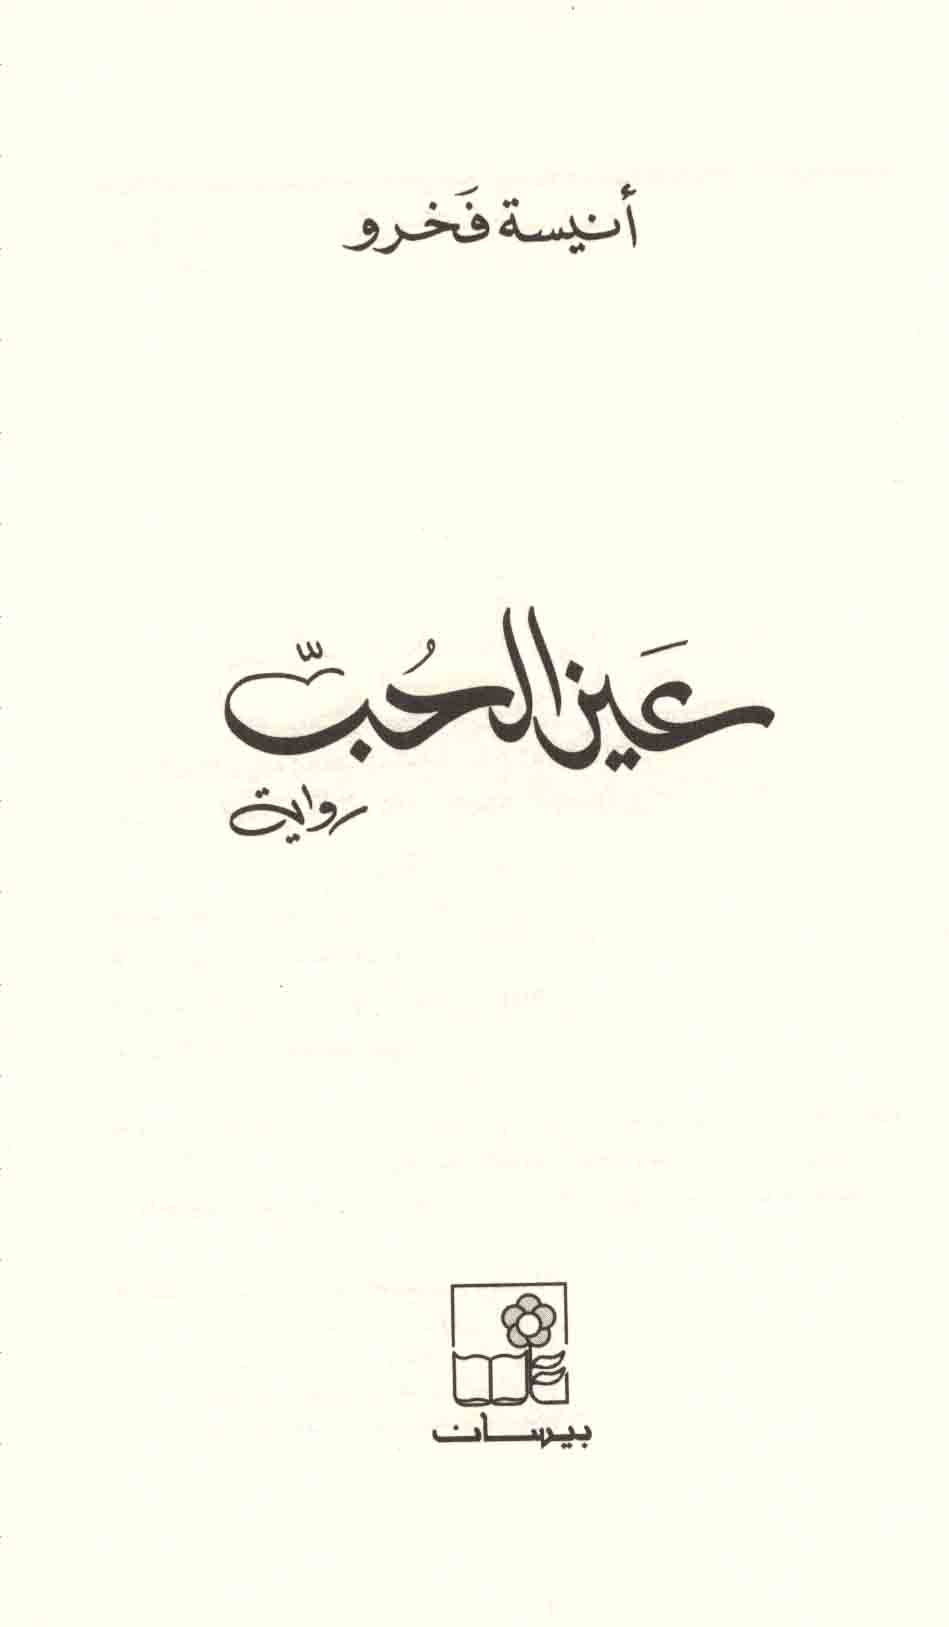 أنيسة فَخرو
عَين الحُبّ
رواية
بيسان